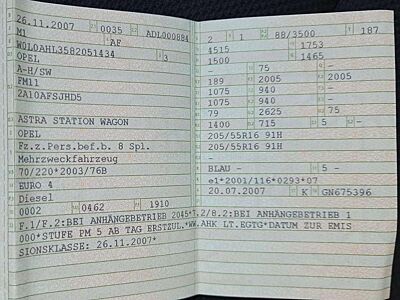 26.11.2007 0035 ADL000884
M1 AF
W0L0AHL3582051434
OPEL 3
A-H/SW
FM11
2A10AFSJHD5
ASTRA STATION WAGON
OPEL
Fz.z.Pers.bef.b. 8 Spl.
Mehrzweckfahrzeug
70/220*2003/76B
EURO 4
Diesel
0002 0462 1910
F.1/F.2:BEI ANHÄNGEBETRIEB 2045*7.2/8.2:BEI ANHÄNGEBETRIEB 1
000*STUFE PM 5 AB TAG ERSTZUL.*WW.AHK LT.EGTG*DATUM ZUR EMIS
SIONSKLASSE: 26.11.2007*
2 1 88/3500 187
4515 1753
1500 1465
- 75 -
189 2005 2005
1075 940 -
1075 940 -
79 2625 75
1400 715 5 -
205/55R16 91H
205/55R16 91H
-
BLAU - 5 -
e1*2001/116*0293*07
20.07.2007 K GN675396